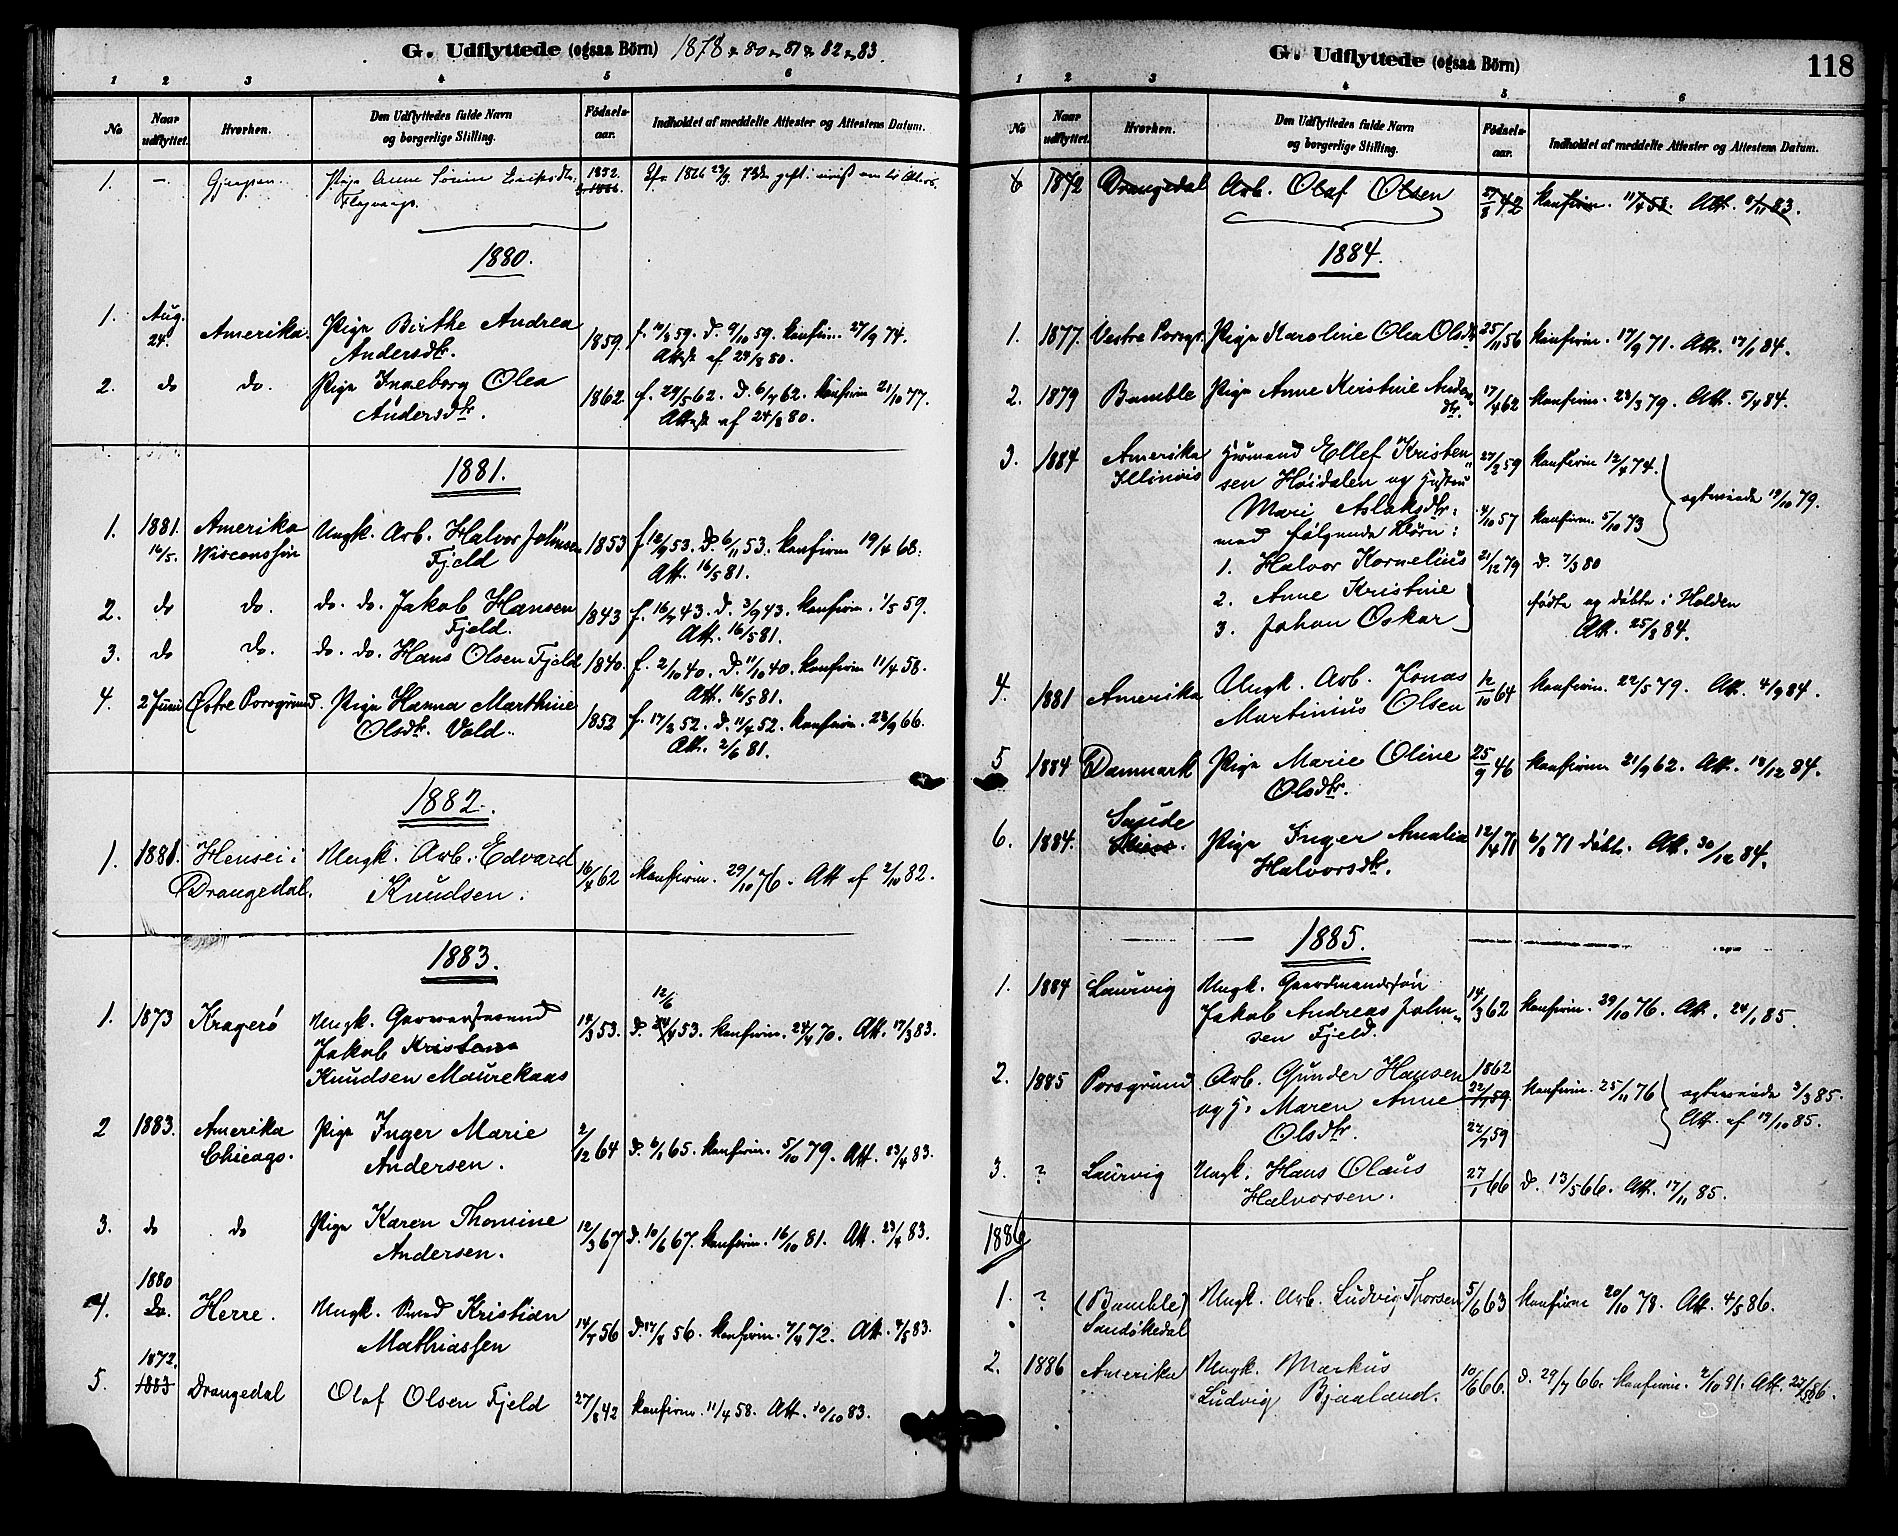 G. Udflyttede (ogsaa Börn) 1878 & 80 & 81 & 82 & 83.
1 2 3 4 5 6
No Naar udflyttet. Hvorhen. Den Udflyttedes fulde Navn og borgerlige Stilling. Fødselsaar. Indholdet af meddelte Attester og Attestens Datum.
1. — Gjerpen. Pige Anne Eriksdtr. 1852.
1880.
1. Aug. 24. Amerika. Pige Birthe Andrea 1859. 59. d. 9/10 59. konfirm. 27/9 74.
Andersdtr. Attest af 24/8 80.
2. do do. Pige Ingeborg Olea 1862 f. 29/5 62. d. 6/7 62. konfirm 21/10 77.
Andersdtr. Attest af 24/8 80.
1881.
1. 1881. 16/5. Amerika Ungk. Arb. Halvor Johnsen 1853 f. 12/9 53. d. 6/11 53. konfirm 19/4 68.
Wisconsin Fjeld Att. 16/5 81.
2. do do. do. do. Jakob Hansen 1843 f. 16/7 43. d. 3/9 43. konfirm. 1/5 59.
Fjeld. Att. 16/5 81.
3. do do. do. do. Hans Olsen Fjeld 1840. f. 2/10 40. d. 11/10 40. konfirm 11/4 58.
Att. 16/5 81.
4. 2 Juni Østre Porsgrund. Pige Hanna Marthine 1852 f. 17/2 52. d. 11/4 52. konfirm. 23/9 66.
Olsdtr. Vold. Att. 2/6 81.
1882.
1. 1881. Hensei i Ungk. Arb. Edvard 16/4 62 Konfirm. 29/10 76. Att af 2/10 82.
Drangedal. Knudsen.
1883.
12/6
1. 1873 Kragerø Ungk. 12/3 53. d. 53. konfirm. 24/4 70. Att. 17/3 83.
Jakob Kristen
Knudsen Maurekaas
2 1883. Amerika Pige Inger Marie 2/12 64 d. 6/1 65. konfirm. 5/10 79. Att. 23/4 83.
Chicago. Andersen.
3. do do Pige Karen Thomine 12/3 67 d. 10/6 67. konfirm. 16/10 81. Att. 23/4 83.
Andersen.
1880
4. do. Herre. Ungk. Kristian 14/7 56 d. 17/8 56. konfirm. 7/4 72. Att. 7/5 83.
Mathiassen
1872.
5. 1883 Drangedal Olaf Olsen Fjeld 27/8 42 konfirm. 11/4 58. Att. 10/10 83.
G. Udflyttede (ogsaa Börn) 118
1 2 3 4 5 6
No Naar udflyttet. Hvorhen. Den Udflyttedes fulde Navn og borgerlige Stilling. Fødselsaar. Indholdet af meddelte Attester og Attestens Datum.
6 1872 Drangedal Arb. Olaf Olsen 27/8 42 konfirm. 11/4 58. Att. 83.
1884.
1. 1877. Vestre Porsgr. Pige Karoline Olea Olsdtr. 25/11 56 konfirm. 17/9 71. Att. 17/1 84.
2. 1879 Bamble Pige Anne Kirstine Anders- 17/4 62 konfirm. 23/3 79. Att. 5/4 84.
dtr.
3. 1884 Amerika Husmand Ellef Kristen- 27/2 59 konfirm 12/4 74. ægteviede 19/10 79.
Illinois sen Høidalen og Hustru
Mari Aslaksdtr. 4/10 57 konfirm. 5/10 73
med følgende Børn:
1. Halvor Kornelius 21/12 79 d. 7/3 80
2. Anne Kristine fødte og døbte i Holden
3. Johan Oskar Att. 25/3 84.
4. 1881 Amerika Ungk. Arb. Jonas 12/10 64 konfirm. 22/5 79. Att. 4/9 84.
Martinius Olsen
5 1884 Danmark Pige Marie Oline 25/9 46 konfirm. 21/9 62. Att. 18/12 84.
Olsdtr.
Saude
6. 1884. Skien. Pige Inger Amalia 12/4 71 6/8 71 døbt. Att. 30/12 84.
Halvorsdtr.
1885.
1. 1884 Laurvig Ungk. Gaardmandssøn 14/3 62 konfirm. 29/10 76. Att. 24/1 85.
Jakob Andreas John-
sen Fjeld.
2. 1885 Porsgrund Arb. Gunder Hansen 1862 konfirm. 25/11 76 ægteviede 3/3 85.
og H. Maren Anne 22/7 59. Att. af 19/10 85.
Olsdtr. 22/7 59
3. ? Laurvig Ungk. Hans Olaus 27/1 66 d. 13/5 66. Att. 17/11 85.
Halvorsen.
1886
1. ? (Bamble) Ungk. Arb. Ludvig Thorsen 5/6 63 konfirm 20/10 78. Att. 4/5 86.
Sandøkedal
2. 1886 Amerika Ungk. Markus 10/6 66. d. 29/7 66. konfirm. 2/10 81. Att. 86.
Ludvig Bjaaland.